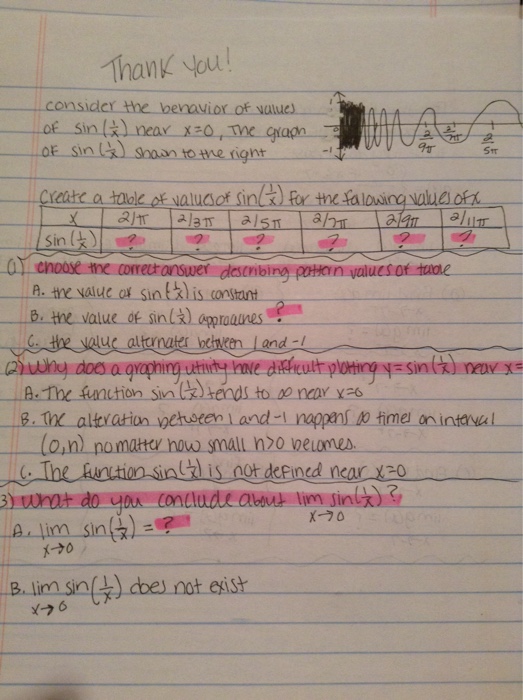 Thank you!
consider the behavior of values
of sin(1/x) near x=0, The graph
of sin(1/x) shown to the right
1
0
-1
2/9π
2/7π
2/5π
Create a table of values of sin(1/x) for the following values of x
x 2/π 2/3π 2/5π 2/7π 2/9π 2/11π
sin(1/x) ? ? ? ? ? ?
1) choose the correct answer describing pattern values of table
A. the value of sin(1/x) is constant
B. the value of sin(1/x) approaches ?
C. the value alternates between 1 and -1
2) Why does a graphing utility have difficult plotting y=sin(1/x) near x=
A. The function sin(1/x) tends to ∞ near x=0
B. The alteration between 1 and -1 happens ∞ times on interval
(0,h) no matter how small h>0 becomes.
C. The function sin(1/x) is not defined near x=0
3) What do you conclude about lim sin(1/x)?
x→0
A. lim sin(1/x) = ?
x→0
B. lim sin(1/x) does not exist
x→0